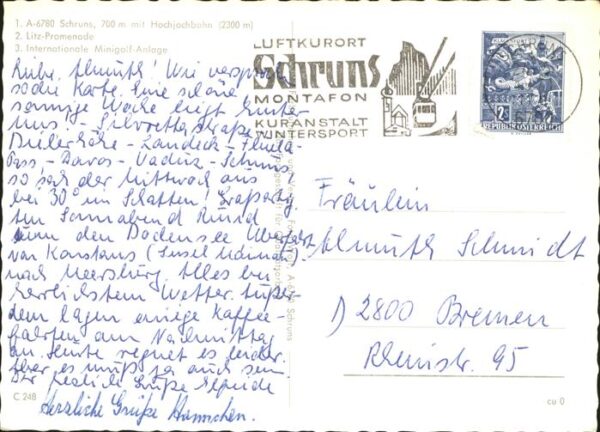 1. A-6780 Schruns, 700 m mit Hochjochbahn (2300 m)
2. Litz-Promenade
3. Internationale Minigolf-Anlage
Liebe Almuth! Wie versprochen
so die Karte. Eine schöne
sonnige Woche liegt hinter
uns. Silvrettastraße
Bielerhöhe - Landeck - Flüela-
Pass - Davos - Vaduz - Schruns
so sah der Mittwoch aus
bei 30° im Schatten! Großartig.
Am Sonnabend Rund
um den Bodensee Überfahrt
von Konstanz (Insel Mainau)
nach Meersburg. Alles bei
herrlichstem Wetter. Außer-
dem lagen einige Kaffee-
fahrten am Nachmittag
an. Heute regnet es leider.
Aber es muß ja auch sein
Dir Grüße
Herzliche Grüße Hannchen.
C 248
LUFTKURORT
Schruns
MONTAFON
KURANSTALT
WINTERSPORT
2
REPUBLIK ÖSTERREICH
Fräulein
Almuth Schmidt
D 2800 Bremen
Rheinstr. 95
cu 0